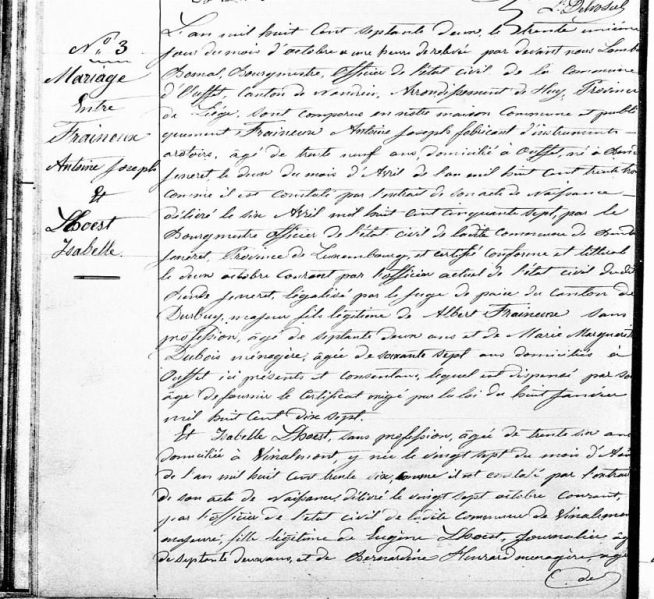 L. Delvosal
N° 3
Mariage
Entre
Fraineux
Antoine Joseph
Et
Lhoest
Isabelle
L'an mil huit Cent septante deux, le trente unième
jour du mois d'octobre à une heure de relevée par devant nous Lamb
Bonal, Bourgmestre, Officier de l'état civil de la commune
d'Ouffet, Canton de Nandrin, Arrondissement de Huy, Province
de Liége, sont comparus en notre maison Commune et publi
quement Fraineux Antoine Joseph fabricant d'instruments
aratoire, âgé de trente neuf ans, domicilié à Ouffet, né à Bende
Jeneret le deux du mois d'Avril de l'an mil huit cent trente trois
comme il est constaté par l'extrait de son acte de Naissance
délivré le six Avril mil huit cent cinquante sept, par le
Bourgmestre officier de l'état civil de ladite Commune de Bende
Jeneret, Province de Luxembourg, et certifié conforme et littéral
le deux octobre Courant par l'officier actuel de l'état civil du dit
Bende Jeneret, légalisé par le juge de paix du canton de
Durbuy, majeur fils légitime de Albert Fraineux sans
profession, âgé de septante deux ans et de Marie Marguerite
Dubois ménagère, âgée de soixante sept ans domiciliés à
Ouffet ici présents et consentans, lequel est dispensé par son
âge de fournir le Certificat exigé par la loi du huit Janvier
mil huit Cent dix sept.
Et Isabelle Lhoest, sans profession, âgée de trente six ans
domiciliée à Vinalmont, y née le vingt sept du mois d'
de l'an mil huit cent trente six, comme il est constaté par l'extrait
de son acte de Naissance, délivré le vingt sept octobre courant,
par l'officier de l'état civil de la dite Commune de Vinalmont
majeure, fille légitime de Eugène Lhoest, Journalier, âgé
de septante deux ans, et de Bernardine Henrard ménagère, âgée
de